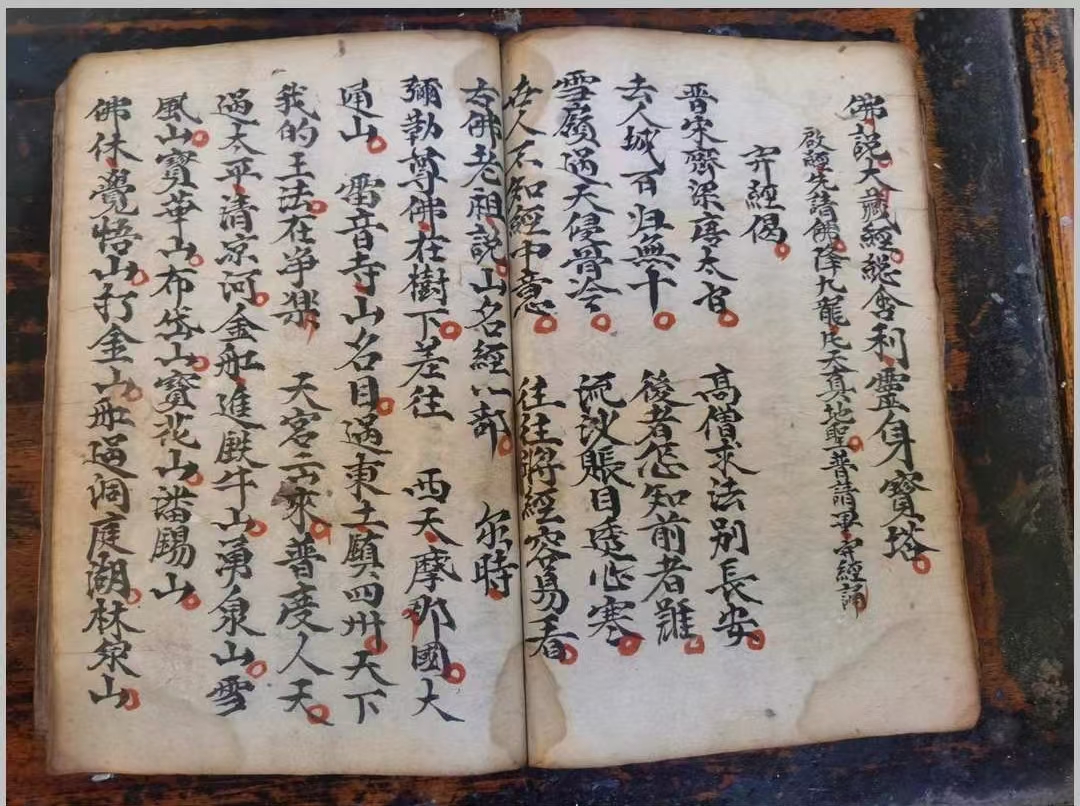 佛說大藏經總舍利靈身寶塔
啟經先請佛降九龍氏天真地聖普請畢宇經誦
宇經偈
晋宋齊梁唐太宗 高僧求法別長安
去人城百归無十 後者怎知前者難
雪嶺過天侵骨冷 流沙賬目透心寒
世人不知經中意 往往將經容易看
古佛老祖說山名經一部 尔時
彌勒尊佛在樹下差往 西天摩那國大
通山 雷音寺山名目過東土願四卅天下
我的王法在爭樂 天宮云來普度人天
過太平清凉河金船進鉄牛山勇泉山雪
風山寶華山布袋山寶花山藩賜山
佛休覺悟山打金山船過洞庭湖林泉山